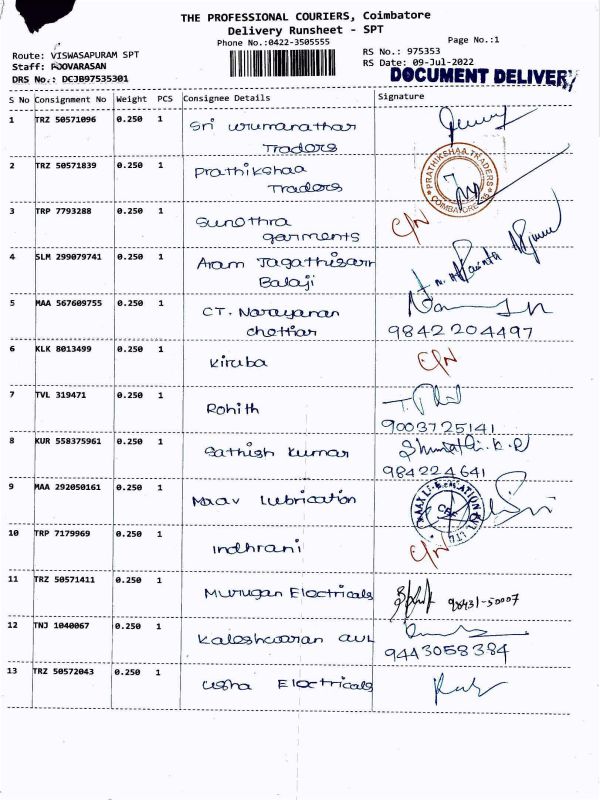 THE PROFESSIONAL COURIERS, Coimbatore
Delivery Runsheet - SPT
Phone No.:0422-3505555
Page No.:1
Route: VISWASAPURAM SPT
RS No.: 975353
Staff: POOVARASAN
RS Date: 09-Jul-2022
DRS No.: DCJB97535301
DOCUMENT DELIVERY
S No Consignment No Weight PCS Consignee Details Signature
1 TRZ 50571096 0.250 1 Sri
Traders
2 TRZ 50571839 0.250 1 Prathikshaa
Traders
PRATHIKSHAA TRADERS
COIMBATORE
3 TRP 7793288 0.250 1 Sunethra
garments
C/N
4 SLM 299079741 0.250 1 Aram Jagathisan
Balaji
5 MAA 567609755 0.250 1 CT. Narayanan
chettiar
9842204497
6 KLK 8013499 0.250 1 Kiruba
C/N
7 TVL 319471 0.250 1 Rohith
9003725141
8 KUR 558375961 0.250 1 Sathish Kumar
984224641
9 MAA 292050161 0.250 1 Maav Lubrication
10 TRP 7179969 0.250 1 Indhrani
C/N
11 TRZ 50571411 0.250 1 Murugan Electricals
98431-50007
12 TNJ 1040067 0.250 1 Kaleshwaran
9443058384
13 TRZ 50572043 0.250 1 Usha Electricals